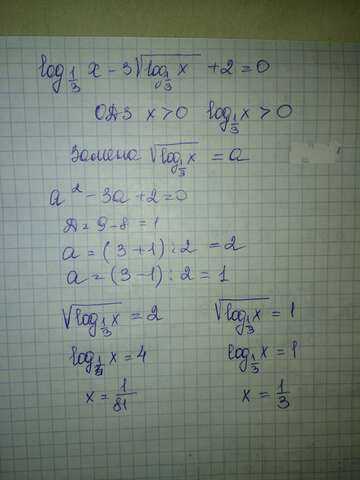 log_{1/3} x - 3√(log_{1/3} x) + 2 = 0
ОДЗ x > 0 log_{1/3} x > 0
Замена √(log_{1/3} x) = a
a² - 3a + 2 = 0
Д = 9 - 8 = 1
a = (3 + 1) : 2 = 2
a = (3 - 1) : 2 = 1
√(log_{1/3} x) = 2 √(log_{1/3} x) = 1
log_{1/3} x = 4 log_{1/3} x = 1
x = 1/81 x = 1/3